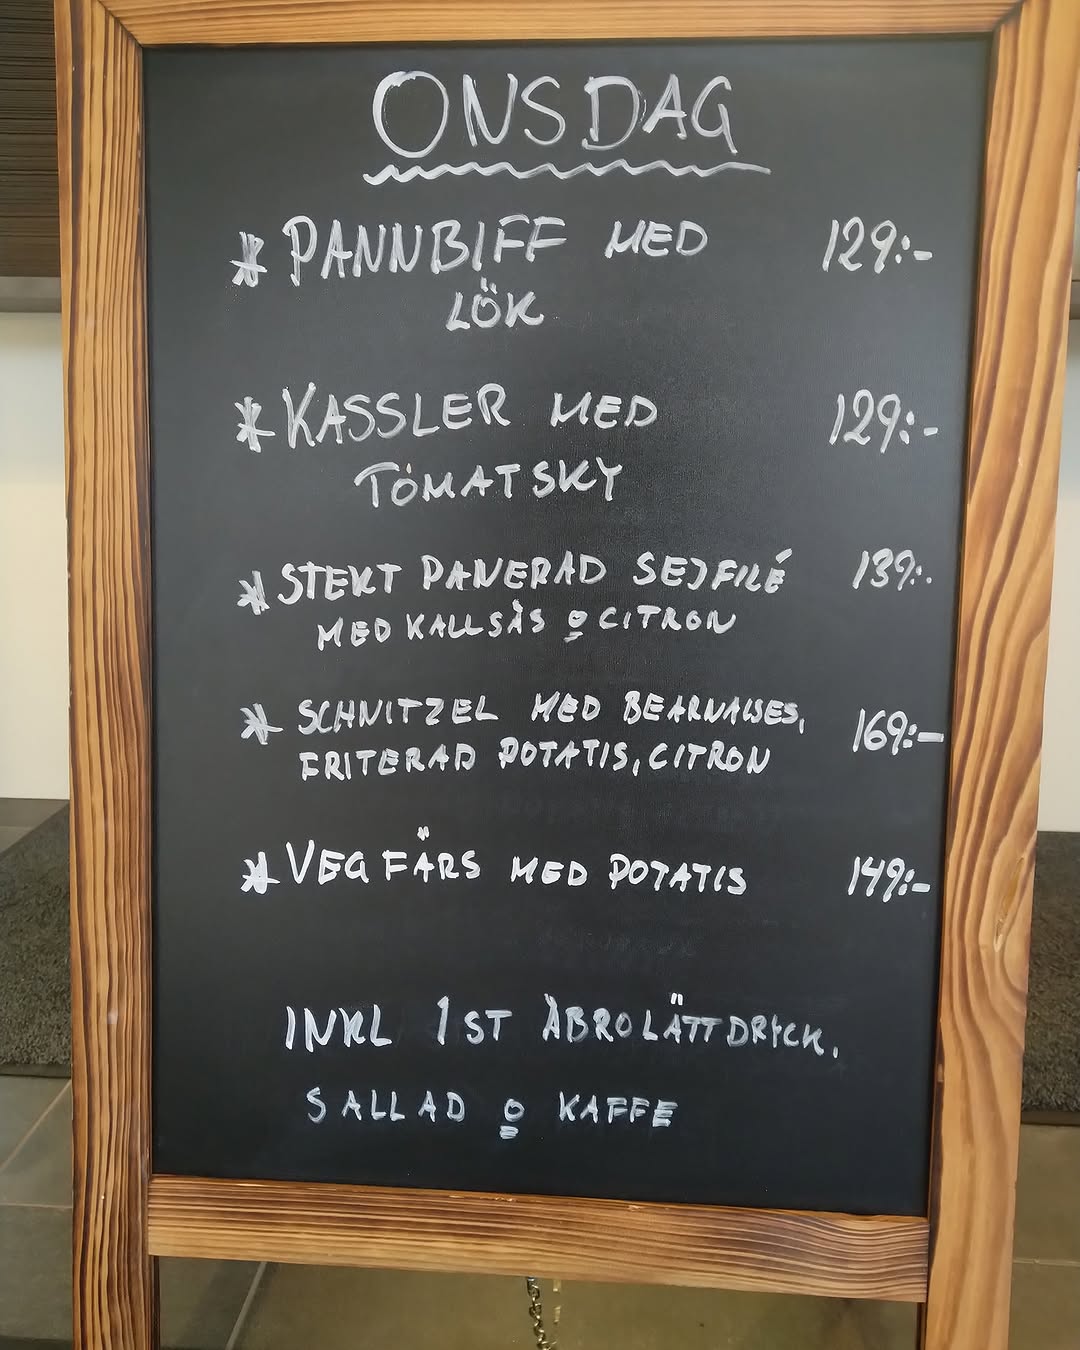 ONSDAG
* PANNBIFF MED 129:-
LÖK
* KASSLER MED 129:-
TOMATSKY
* STEKT PANERAD SEJFILÉ 139:-
MED KALLSÅS o CITRON
* SCHNITZEL MED BEARNAISES, 169:-
FRITERAD POTATIS, CITRON
* VEG FÄRS MED POTATIS 149:-
INKL 1 ST ÅBRO LÄTTDRYCK,
SALLAD o KAFFE